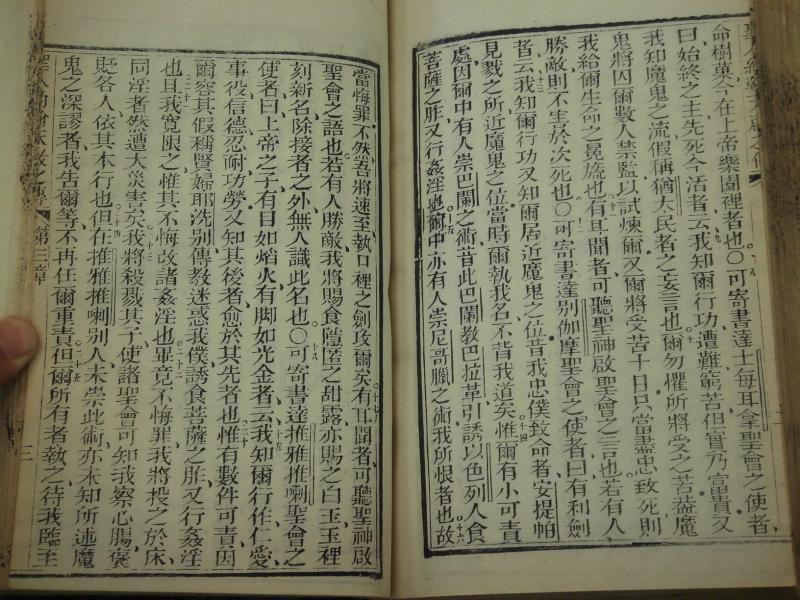 命樹菓今在上帝樂園裡者也〇可寄書達士每耳拿聖會之使者
曰始終之主先死今活者云我知爾行功遭難窮苦但實乃富貴又
我知魔鬼之流假稱猶大民者之妄言也爾勿懼所將受之苦蓋魔
鬼將囚爾數人禁監以試煉爾又爾將受苦十日只當盡忠致死則
我給爾生命之冕旒也有耳聞者可聽聖神啟聖會之言也若有人
勝敵則不至於次死也〇可寄書達別伽摩聖會之使者曰有利劍
者云我知爾行功又知爾居近魔鬼之位昔我忠僕致命者安提帕
見戮之所近魔鬼之位當時爾執我名不背我道矣惟爾有小可責
處因爾中有人崇巴闌之術昔此巴闌教巴拉革引誘以色列人食
菩薩之胙又行姦淫也爾中亦有人崇尼哥臘之術我所恨者也故
當悔罪不然吾將速至執口裡之劍攻爾矣有耳聞者可聽聖神啟
聖會之語也若有人勝敵我將賜食隱匿之甜露亦賜之白玉玉裡
刻新名除接者之外無人識此名也〇可寄書達推雅推喇聖會之
使者曰上帝之子有目如焰火有脚如光金者云我知爾行作仁愛
事役信德忍耐功勞又知其後者愈於其先者也惟有數件可責因
爾容其假稱賢婦耶洗別傳教迷惑我僕誘食菩薩之胙又行姦淫
也且我寬限之惟其不悔改諸姦淫也畢竟不悔罪我將投之於床
同淫者然遭大災害矣我將殺戮其子使諸聖會可知我察心腸褒
貶各人依其本行也但在推雅推喇別人未崇此術亦未知所述魔
鬼之深謬者我告爾等不再任爾重責但爾所有者執之待我臨至
第三章
三